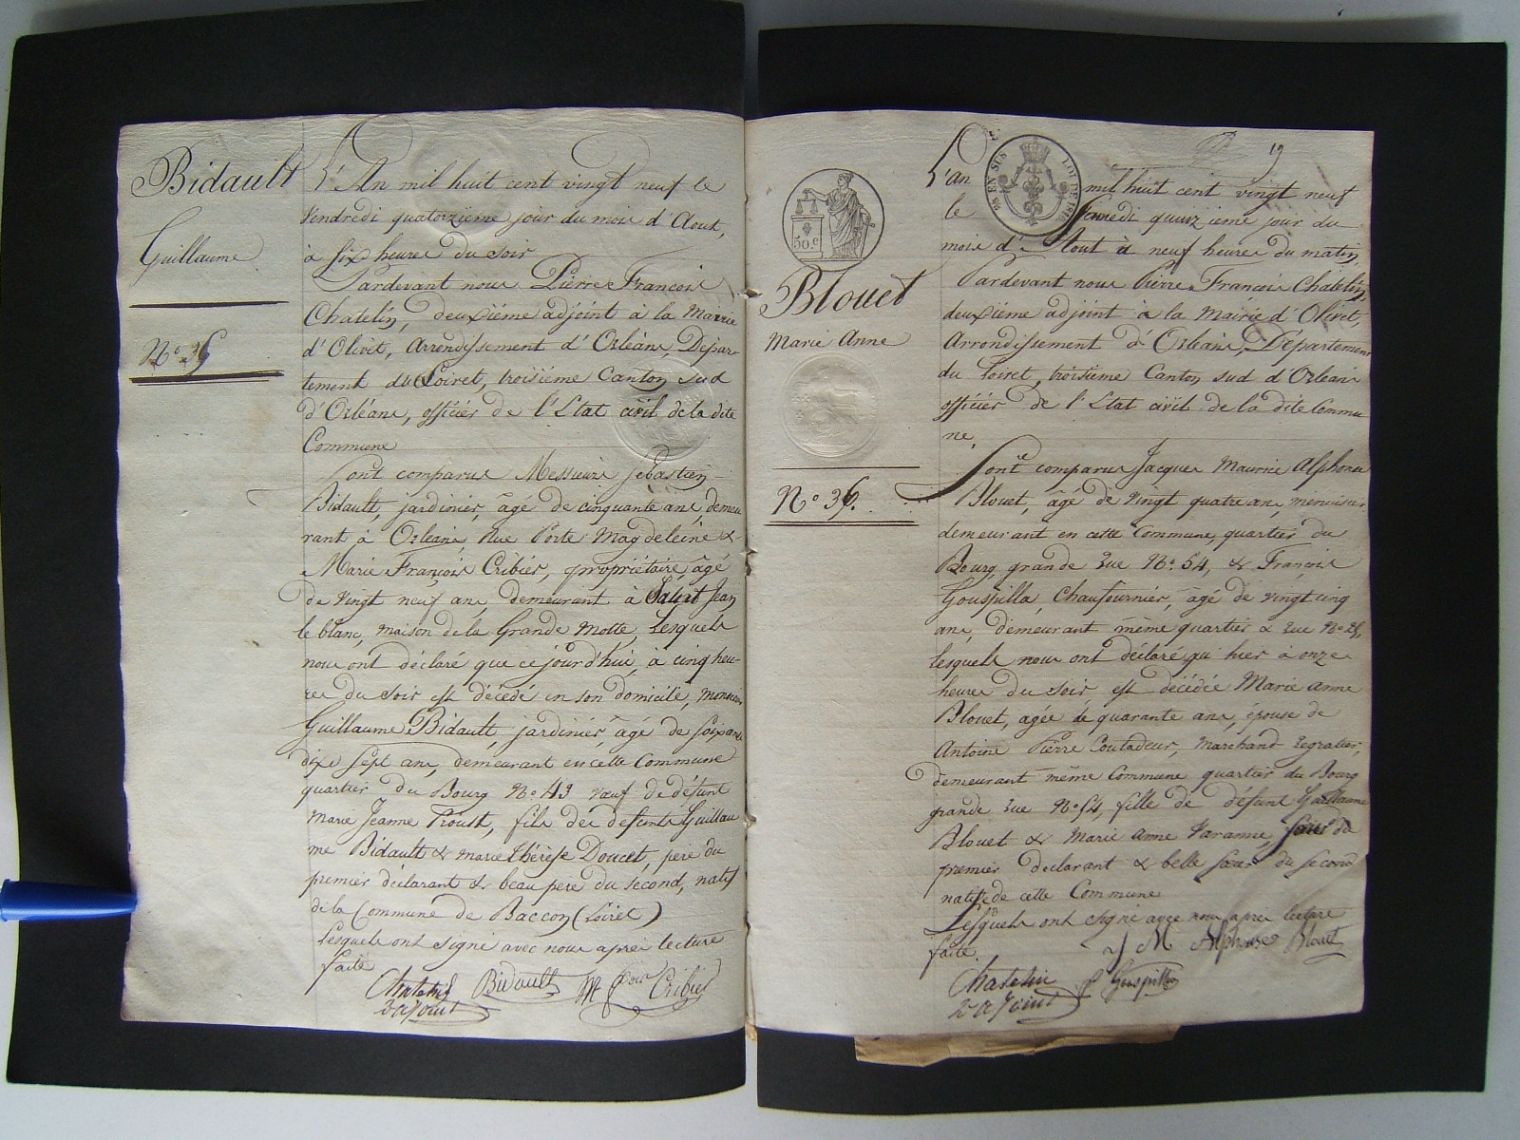 Bidault
Guillaume
L'An mil huit cent vingt neuf le
Vendredi quatorzième jour du mois d'Aout,
à six heures du soir
Pardevant nous Pierre François
Chatelin, deuxième adjoint à la Mairie
d'Olivet, arrondissement d'Orléans, Dépar-
tement du Loiret, troisième Canton Sud
d'Orléans, officier de l'Etat civil de la dite
Commune
Sont comparus Messieurs Sébastien
Bidault, jardinier, âgé de cinquante ans, demeu
rant à Orléans, Rue Porte Magdeleine &
Marie François Cribier, propriétaire, âgé
de vingt neuf ans, demeurant à Saint Jean
le blanc, maison de la Grande Motte, Lesquels
nous ont déclaré que cejourd'hui, à cinq heu-
res du soir est décédé en son domicile, Monsieur
Guillaume Bidault, jardinier, âgé de soixante
dix sept ans, demeurant en cette Commune
quartier du Bourg No. 43 veuf de défunt
Marie Jeanne fils des defunts Guillau
me Bidault & marie thérèse Doucet, père du
premier déclarant & beau père du second, natif
de la Commune de Baccon (Loiret)
Lesquels ont signé avec nous après lecture
faite
Chatelin
2e adjoint
Bidault
Cribier
19
EN SUS
50.c
Blouet
Marie Anne
No 36.
L'an mil huit cent vingt neuf
le Samedi quinzième jour du
mois d'Aout à neuf heures du matin
Pardevant nous Pierre François Chatelin,
deuxième adjoint à la Mairie d'Olivet,
Arrondissement d'Orléans, Département
du Loiret, troisième Canton sud d'Orléans
officier de l'Etat civil de la dite Commu
ne.
Sont comparus Jacques Maurice Alphonse
Blouet, âgé de vingt quatre ans menuisier
demeurant en cette Commune, quartier du
Bourg grande rue No. 54, & François
Gouspilla, Chaufournier, âgé de vingt cinq
ans, demeurant même quartier & rue
lesquels nous ont déclaré qu'hier à onze
heures du soir est décédée Marie Anne
Blouet, agée de quarante ans, épouse de
Antoine Pierre Coutadeur, Marchand regratier,
demeurant même Commune quartier du Bourg
grande rue No. 54, fille de défunt Guillaume
Blouet & Marie Anne Varanne, soeur du
premier declarant & belle soeur du second
native de cette Commune
Lesquels ont signé avec nous après lecture
faite.
J M Alphonse Blouet
Chatelin
2e adjoint